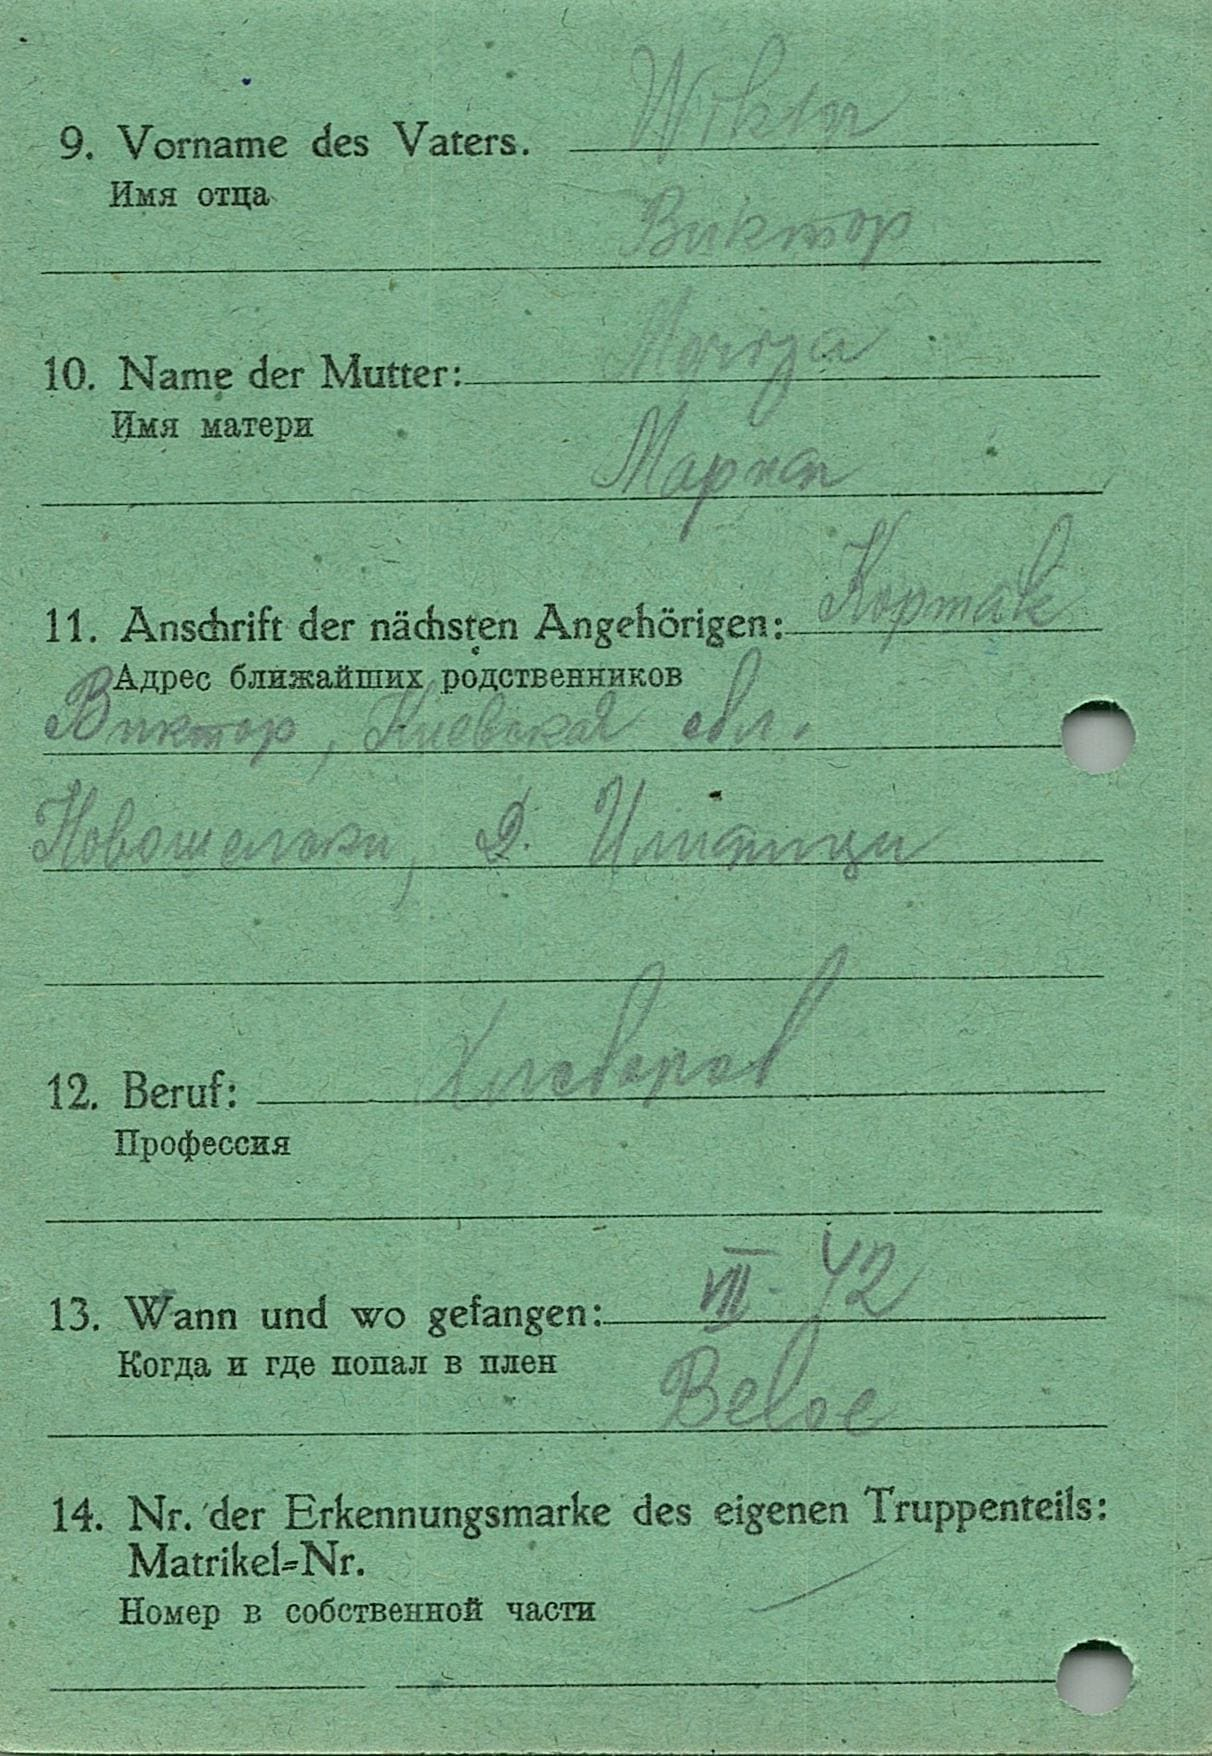 Wiktor
9. Vorname des Vaters.
Имя отца
Виктор
10. Name der Mutter:
Имя матери
Мария
11. Anschrift der nächsten Angehörigen: Кортак
Адрес ближайших родственников
Виктор, Киевская обл.
Новошельки, д.
12. Beruf: Хлебороб
Профессия
13. Wann und wo gefangen: VIII. 42
Когда и где попал в плен
Beloe
14. Nr. der Erkennungsmarke des eigenen Truppenteils:
Matrikel=Nr.
Номер в собственной части